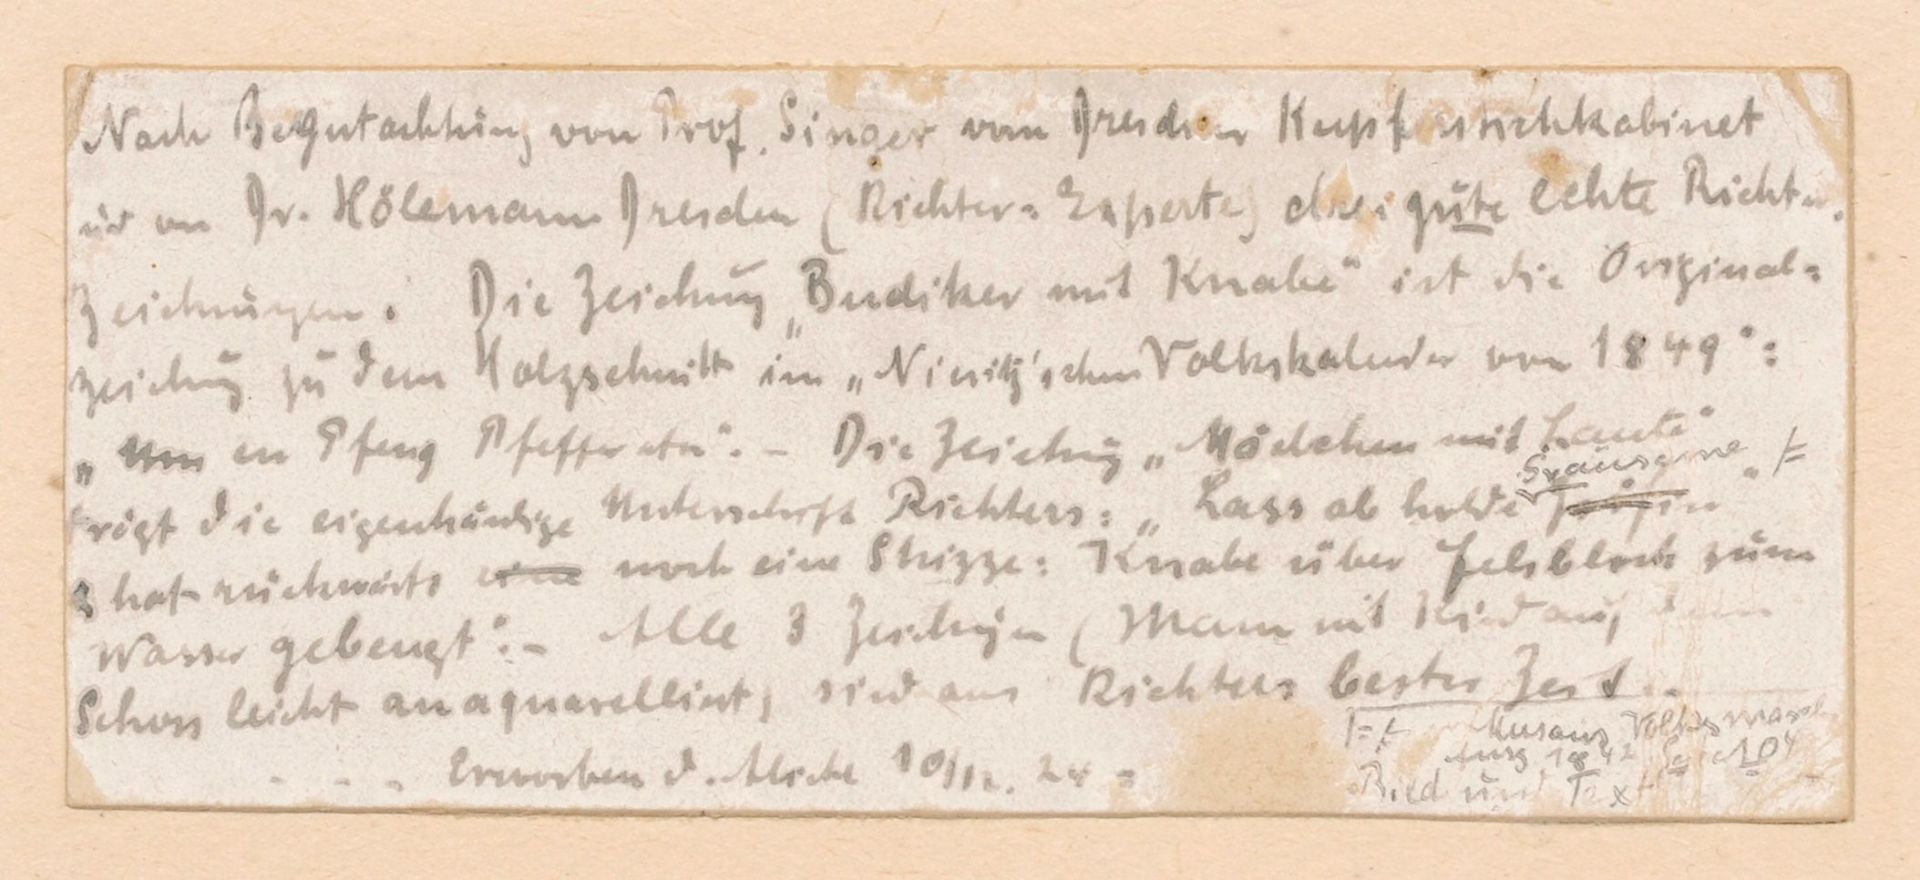 Nach Begutachtung von Prof. Singer vom Dresdner Kupferstichkabinet
und von Dr. Hölemann Dresden (Richter-Experte) drei gute echte Richter-
zeichnungen. Die Zeichnung „Budiker mit Knabe" ist die Original=
zeichnung zu dem Holzschnitt im „Nieritz'schen Volkskalender von 1849":
„Um en Pfeng Pfeffer". – Die Zeichnung „Mädchen mit Laute"
Grausame
trägt die eigenhändige Unterschrift Richters: „Lass ab holde "
& hat rückwärts eine noch eine Skizze: Knabe über Felsblock zum
Wasser gebeugt". – Alle 3 Zeichnungen (Mann mit Kind auf dem
Schoss leicht anaquarelliert, sind aus Richters bester Zeit.
Erworben d. 10/12. 24 =
Musäus Volksmärch
Ausg 1842 Seite 104
Bild und Text